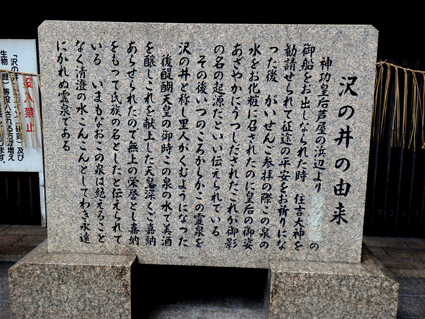 沢の井の由来
神功皇后芦屋の浜辺より の
御船をお出しなられた時 住吉大神を
勧請せられて征途の平安をお祈りにな
った後 がいせんご参拝の際この泉の
水をお化粧に召されたのに皇后の御姿
あざやかにうつしだされたこれが御影
の名の起源だとい伝えられている
その後いつのころからかこの霊泉を
沢の井と称へ里人がくむようになった
後醍醐天皇の御時この泉の水で美酒
を醸しこれを献上した 天 深くご嘉納
あらせられたので無上の栄誉とし嘉納
をもって氏族の名としたと伝えられて
いる いまもなおこの泉は絶えること
なく清澄の水こんこんとしてわき永遠
にかれぬ霊泉である
生物
投入禁止